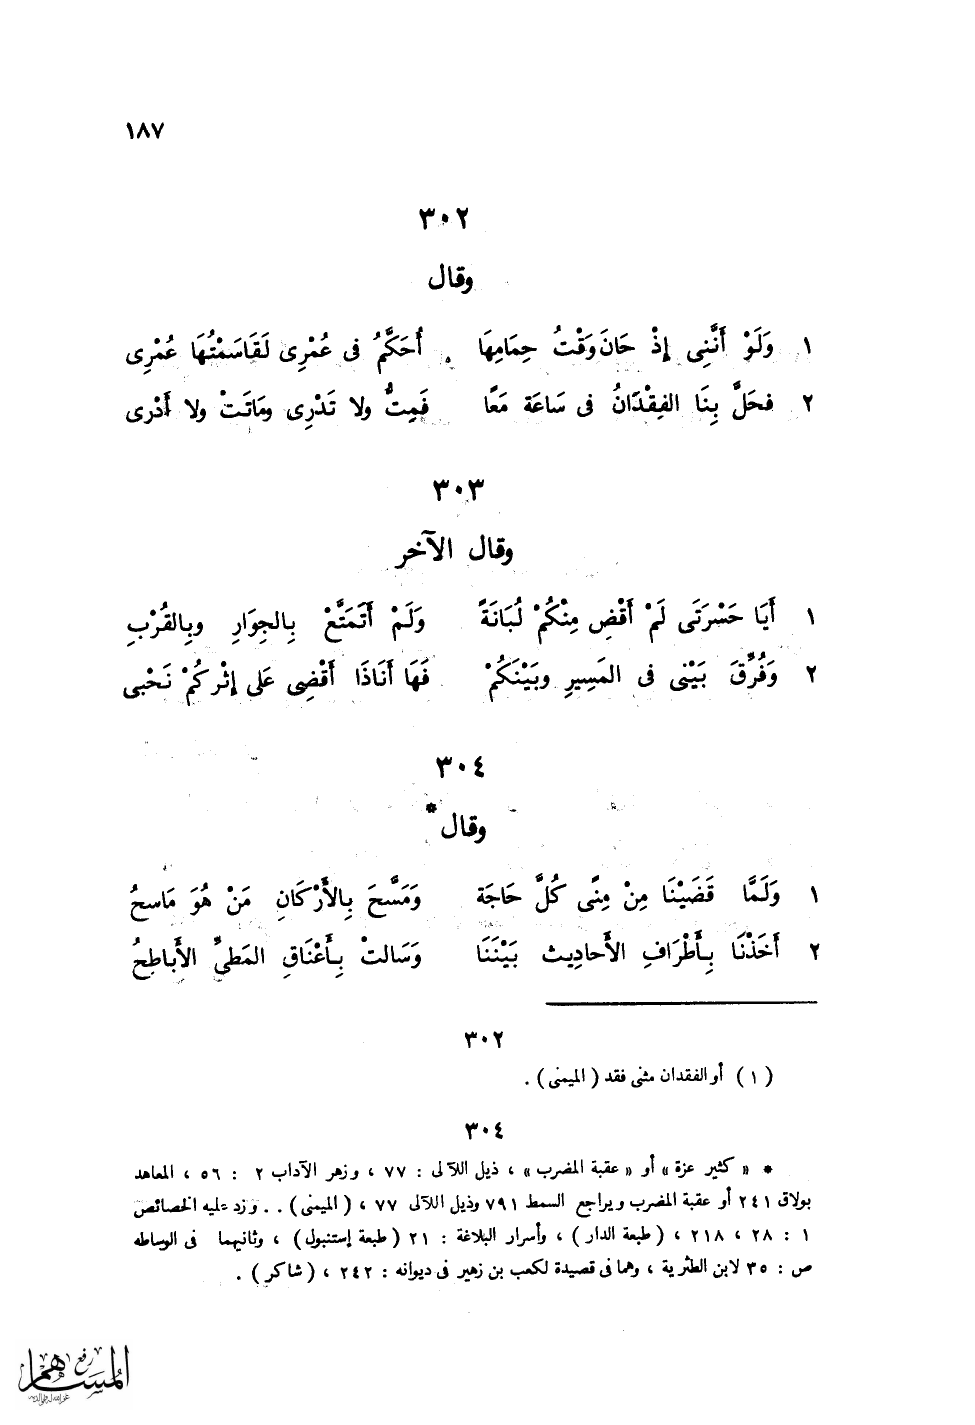 ١٨٧
٣٠٢
وقال
١ وَلَوْ أَنَّنِى إِذْ حَانَ وَقْتُ حِمَامِهَا أُحَكَّمُ فى عُمْرِى لَقَاسَمْتُهَا عُمْرِى
٢ فحَلَّ بِنَا الفِقْدَانُ فى سَاعَة مَعًا فَمِتُّ ولا تَدْرِى ومَاتَتْ ولا أَدْرى
٣٠٣
وقال الآخر
١ أَيَا حَسْرَتَى لَمْ أَقْضِ مِنْكُمْ لُبَانَةً وَلَمْ أَتَمَتَّعْ بِالجِوَارِ وبِالقُرْبِ
٢ وَفُرِّقَ بَيْنِى فى المَسِيرِ وبَيْنَكُمْ فَهَا أَنَاذَا أَقْضِى عَلَى إِثْرِكُمْ نَحْبى
٣٠٤
وقال*
١ وَلَمَّا قَضَيْنَا مِنْ مِنًى كُلَّ حَاجَة وَمَسَّحَ بِالأَرْكَانِ مَنْ هُوَ مَاسحُ
٢ أَخَذْنَا بِأَطْرَافِ الأَحادِيث بَيْنَنَا وَسَالتْ بِأَعْنَاقِ المَطىِّ الأَباطِحُ
٣٠٢
(١) أو الفقدان مثنى فقد (الميمنى).
٣٠٤
* «كثير عزة» أو «عقبة المضرب»، ذيل اللآلى : ٧٧، وزهر الآداب ٢ : ٥٦، المعاهد
بولاق ٢٤١ أو عقبة المضرب ويراجع السمط ٧٩١ وذيل اللآلى ٧٧، (الميمنى). . وزد عليه الخصائص
١ : ٢٨، ٢١٨، (طبعة الدار)، وأسرار البلاغة : ٢١ (طبعة إستنبول)، وثانيهما فى الوساطه
ص : ٣٥ لابن الطثرية، وهما فى قصيدة لكعب بن زهير فى ديوانه : ٢٤٢، (شاكر).
رفع
المساهم